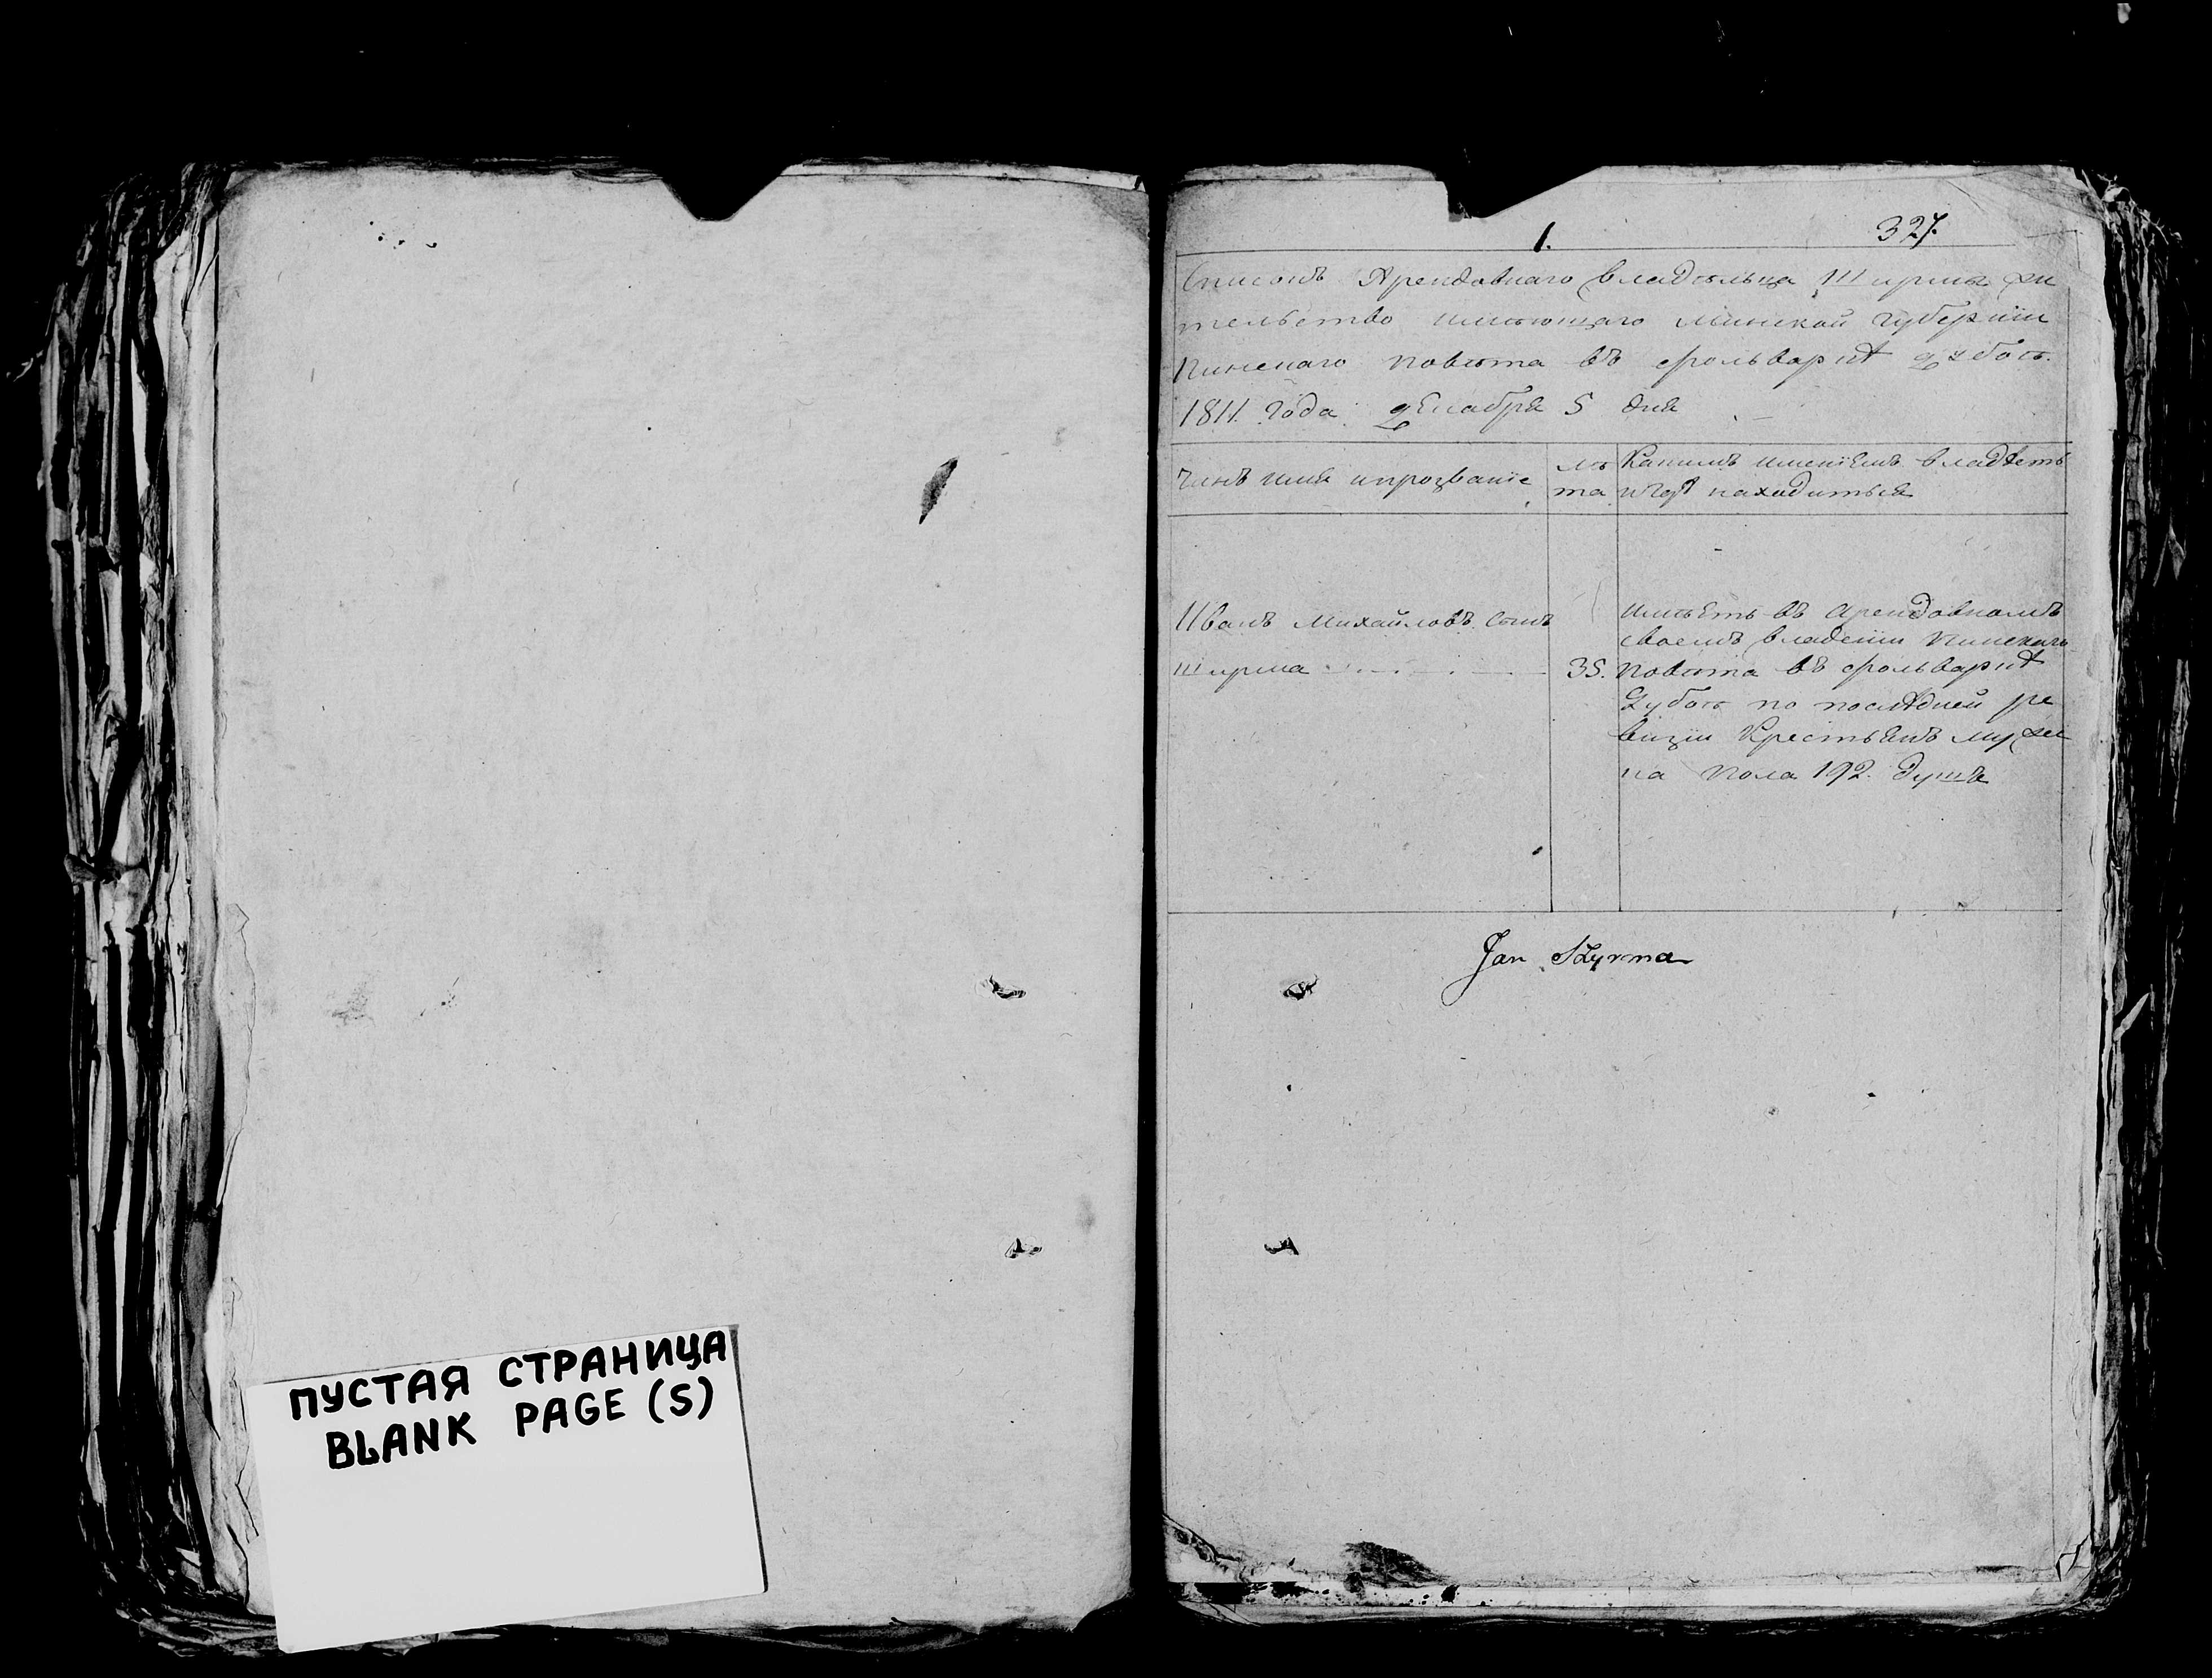 ПУСТАЯ СТРАНИЦА
BLANK PAGE (S)
1.
327.
Списокъ Арендовнаго владѣльца Ширмы жи
тельство имѣющаго Минской Губернїи
Пинскаго Повѣта въ фольваркѣ Дубоѣ.
1811. Года Декабря 5 дня
Чинъ имя ипрозванїе
лѣ
та
Какимъ имѣнїемъ владѣетъ
игдѣ находиться
Иванъ Михайловъ Сынъ
Ширма
35.
имѣетъ въ Арендовномъ
своемъ владенїи Пинскаго
Повѣта въ фольваркѣ
Дубоѣ по послѣдней ре
визїи Крестьянъ муже
ска Пола 192. Душъ
Jan Szyrma